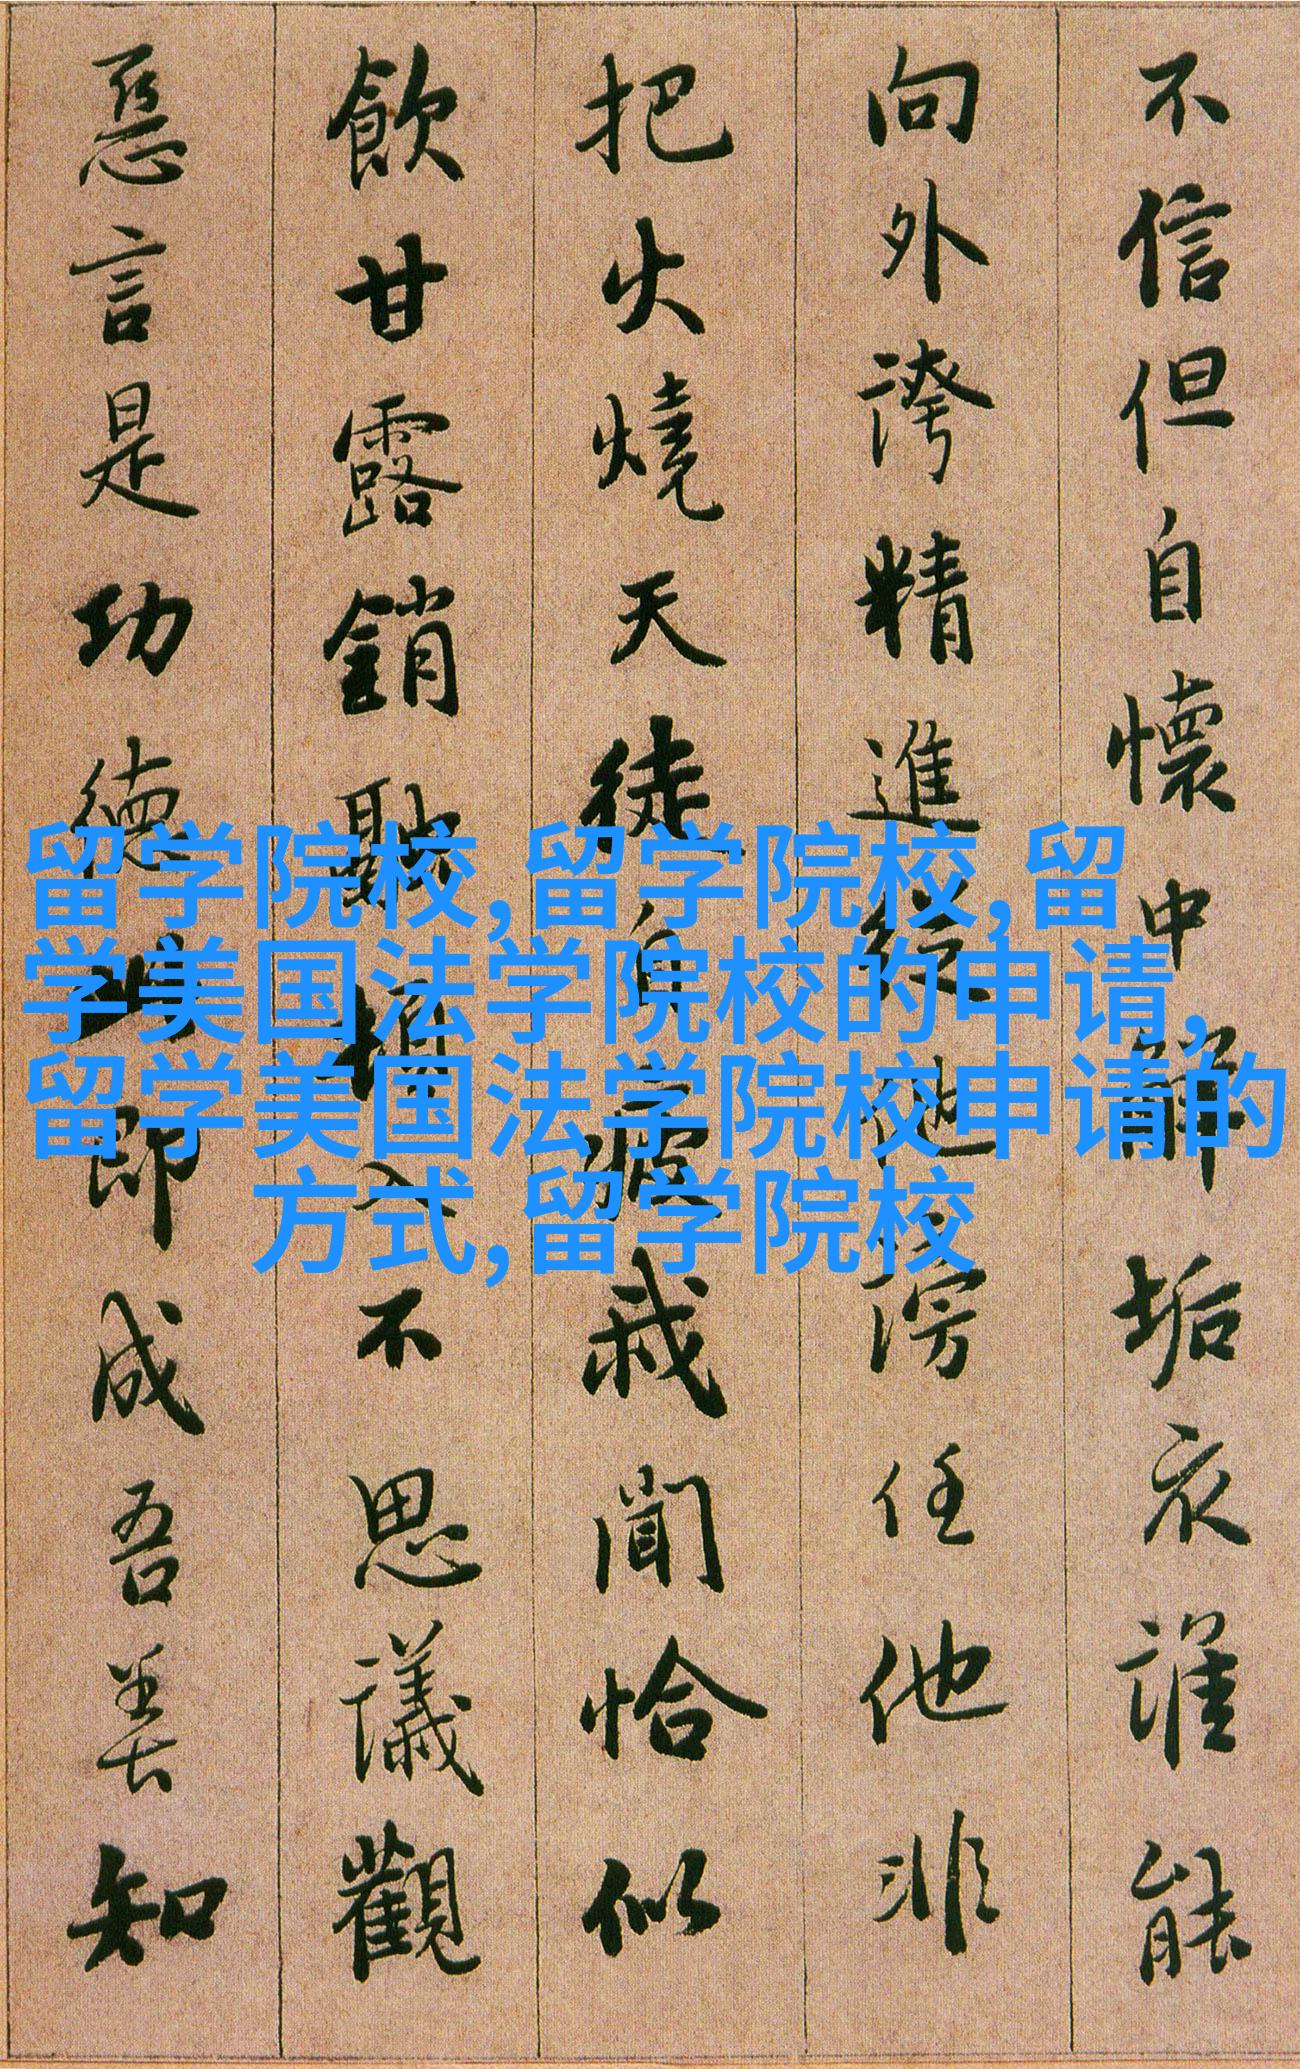 不信但自懷中解垢衣誰能
向外誇精進從他謗任他非
把火燒天徒自疲我聞恰似
飲甘露銷融頓入不思議觀
惡言是功德此即成吾善知
留学院校,留学院校,留
学美国法学院校的申请,
留学美国法学院校申请的
方式,留学院校